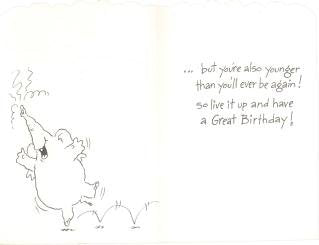 ... but you're also younger
than you'll ever be again!
so live it up and have
a Great Birthday!